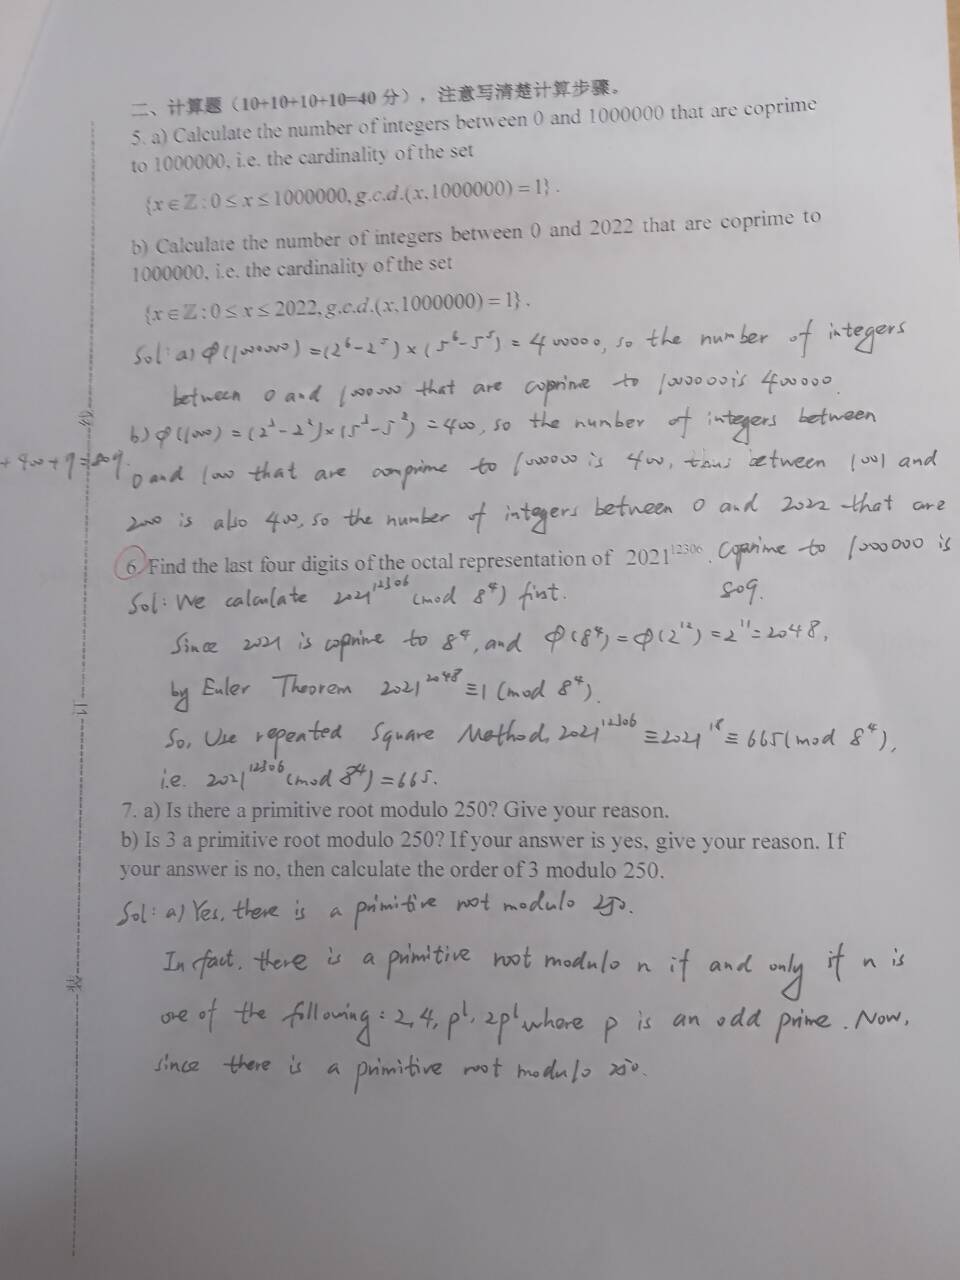 二、计算题（10+10+10+10=40 分），注意写清楚计算步骤。
5. a) Calculate the number of integers between 0 and 1000000 that are coprime
to 1000000, i.e. the cardinality of the set
{x∈ℤ:0≤x≤1000000, g.c.d.(x,1000000)=1}.
b) Calculate the number of integers between 0 and 2022 that are coprime to
1000000, i.e. the cardinality of the set
{x∈ℤ:0≤x≤2022, g.c.d.(x,1000000)=1}.
Sol: a) φ(1000000)=(2⁶-2⁵)×(5⁶-5⁵)=400000, so the number of integers
between 0 and 1000000 that are coprime to 1000000 is 400000.
b) φ(1000)=(2³-2²)×(5³-5²)=400, so the number of integers between
+400+9=809.
0 and 1000 that are comprime to 1000000 is 400, thus between 1001 and
2000 is also 400, so the number of integers between 0 and 2022 that are
coprime to 1000000 is
809.
6. Find the last four digits of the octal representation of 2021¹²³⁰⁶.
Sol: We calculate 2021¹²³⁰⁶ (mod 8⁴) first.
Since 2021 is coprime to 8⁴, and φ(8⁴)=φ(2¹²)=2¹¹=2048,
by Euler Theorem 2021²⁰⁴⁸≡1 (mod 8⁴).
So, Use repeated Square Method, 2021¹²³⁰⁶≡2021¹⁸≡665(mod 8⁴),
i.e. 2021¹²³⁰⁶(mod 8⁴)=665.
7. a) Is there a primitive root modulo 250? Give your reason.
b) Is 3 a primitive root modulo 250? If your answer is yes, give your reason. If
your answer is no, then calculate the order of 3 modulo 250.
Sol: a) Yes, there is a primitive root modulo 250.
In fact, there is a primitive root modulo n if and only if n is
one of the following: 2, 4, pˡ, 2pˡ where p is an odd prime. Now,
since there is a primitive root modulo 250.